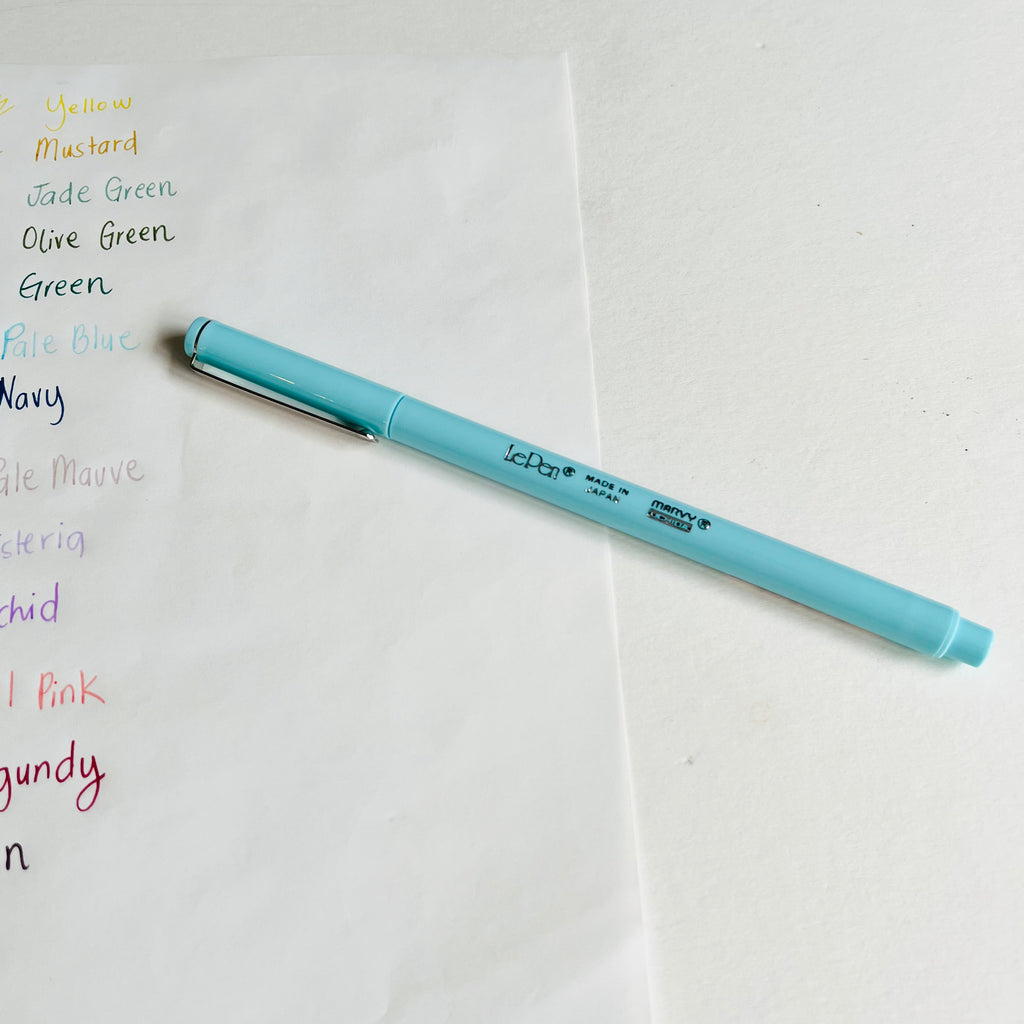 Yellow
Mustard
Jade Green
Olive Green
Green
Pale Blue
Navy
ale Mauve
isteria
chid
l Pink
gundy
n
LePen®
MADE IN
JAPAN
MARVY®